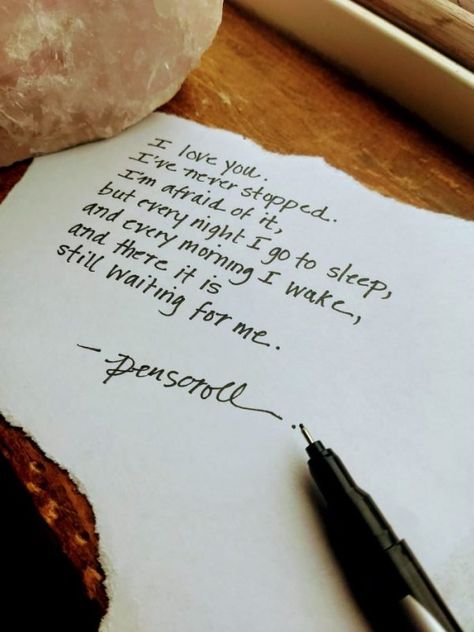 I love you.
I've never stopped.
I'm afraid of it,
but every night I go to sleep,
and every morning I wake,
and there it is
still waiting for me.
- Penscroll